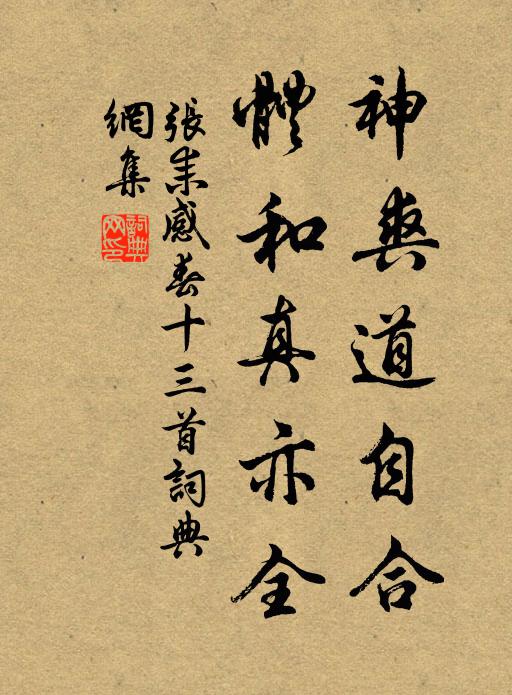 神爽道自合
體和真亦全
張耒感春十三首詞典
網集
詞典
网印